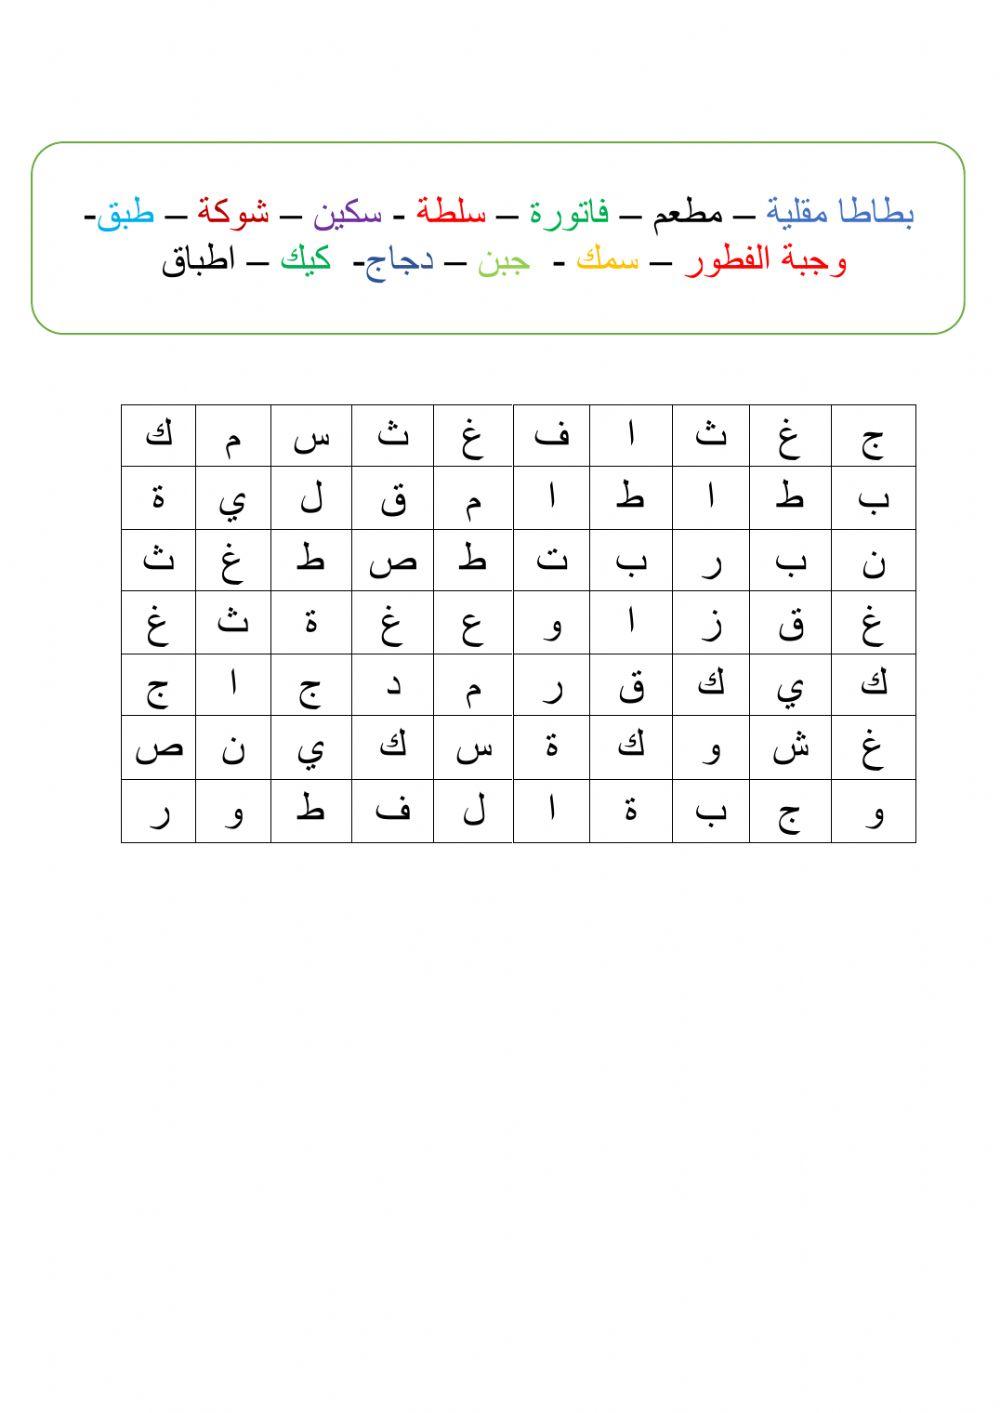 بطاطا مقلية – مطعم – فاتورة – سلطة - سكين – شوكة – طبق-
وجبة الفطور – سمك - جبن – دجاج- كيك – اطباق
ج غ ث ا ف غ ث س م ك
ب ط ا ط ا م ق ل ي ة
ن ب ر ب ت ط ص ط غ ث
غ ق ز ا و ع غ ة ث غ
ك ي ك ق ر م د ج ا ج
غ ش و ك ة س ك ي ن ص
و ج ب ة ا ل ف ط و ر